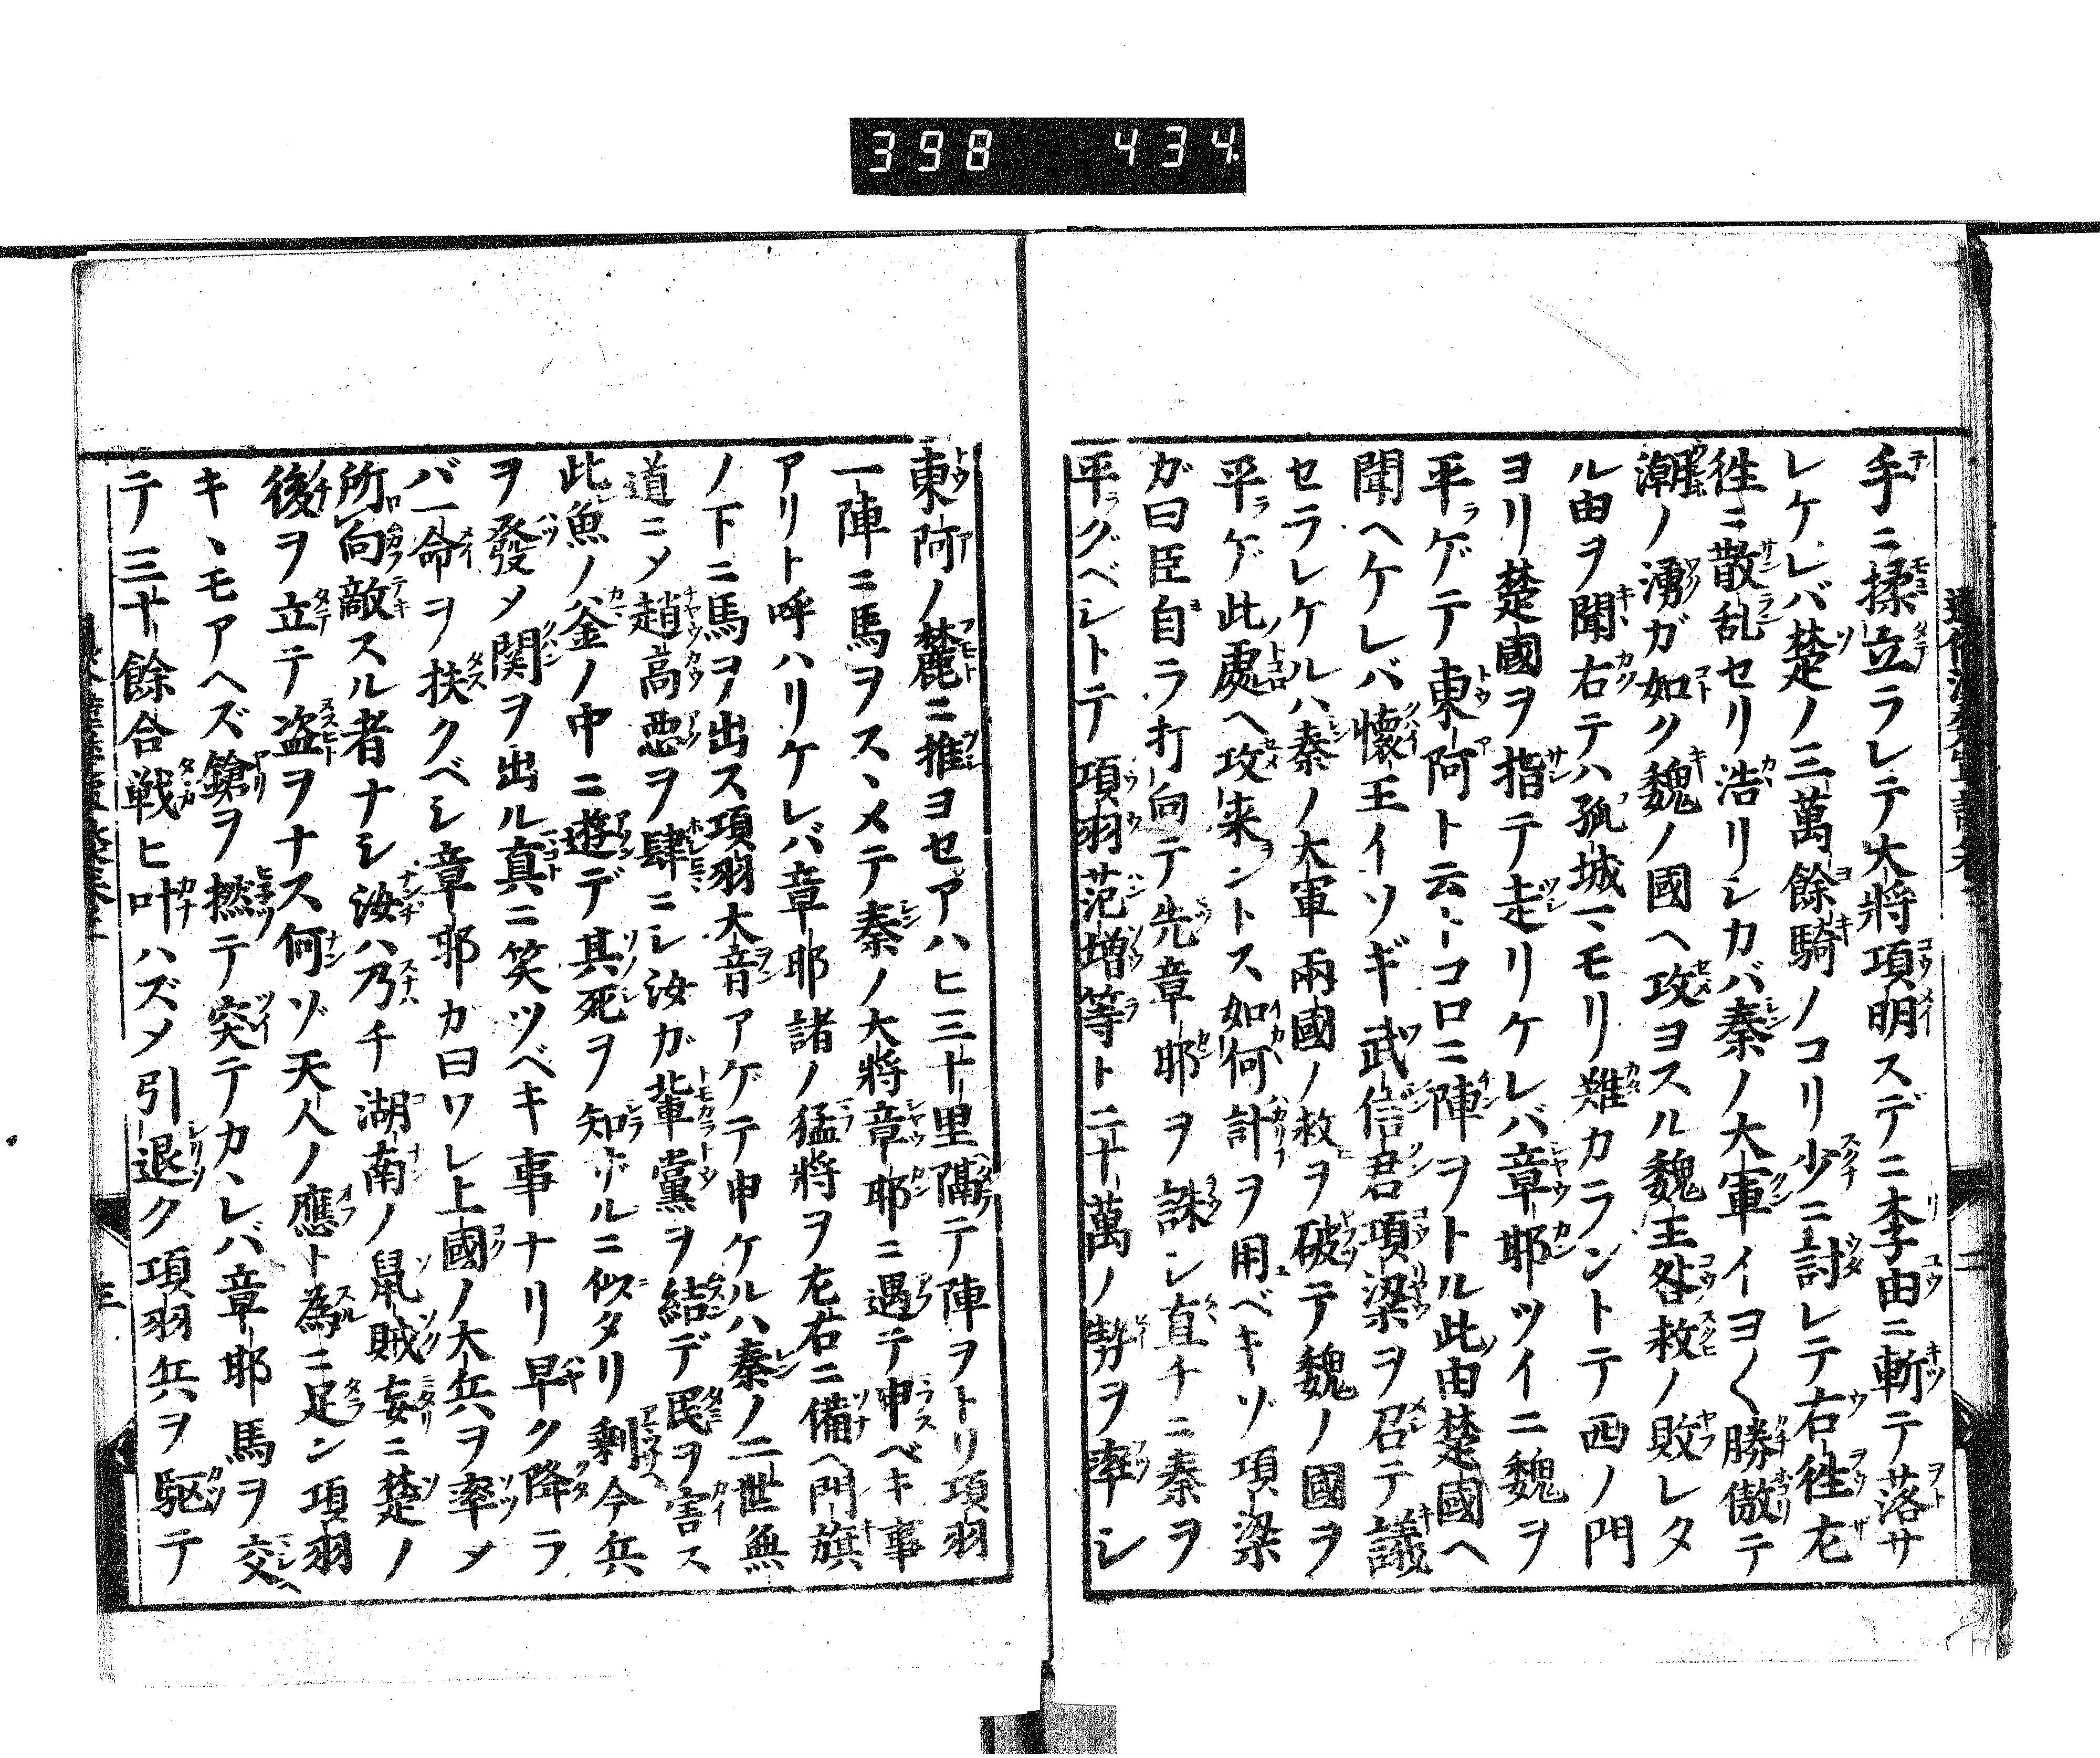 398 434
手ニ揉立ラレテ大將項明スデニ李由ニ斬テ落サ
レケレバ楚ノ三萬餘騎ノコリ少ニ討レテ右徃左
徃ニ散乱セリ浩リシカバ秦ノ大軍イヨ〱勝傲テ
潮ノ湧ガ如ク魏ノ國ヘ攻ヨスル魏王咎救ノ敗レタ
ル由ヲ聞右テハ孤城マモリ難カラントテ西ノ門
ヨリ楚國ヲ指テ走リケレバ章邯ツイニ魏ヲ
平ゲテ東阿ト云トコロニ陣ヲトル此由楚國ヘ
聞ヘケレバ懷王イソギ武信君項梁ヲ召テ議
セラレケルハ秦ノ大軍兩國ノ救ヲ破テ魏ノ國ヲ
平ゲ此處ヘ攻来ントス如何計ヲ用ベキゾ項梁
ガ曰臣自ラ打向テ先章邯ヲ誅シ直チニ秦ヲ
平グベシトテ項羽范増等ト二十萬ノ勢ヲ率シ
東阿ノ麓ニ推ヨセアハヒ三十里隔テ陣ヲトリ項羽
一陣ニ馬ヲスヽメテ秦ノ大將章邯ニ遇テ申ベキ事
アリト呼ハリケレバ章邯諸ノ猛將ヲ左右ニ備ヘ門旗
ノ下ニ馬ヲ出ス項羽大音アゲテ申ケルハ秦ノ二世無
道ニメ趙高悪ヲ肆ニシ汝ガ輩黨ヲ結デ民ヲ害ス
此魚ノ釜ノ中ニ遊デ其死ヲ知ザルニ似タリ剰今兵
ヲ發メ関ヲ出ル真ニ笑ツベキ事ナリ早ク降ラ
バ一命ヲ扶クベシ章邯カ曰ワレ上國ノ大兵ヲ率メ
所向敵スル者ナシ汝ハ乃チ湖南ノ鼠賊妄ニ楚ノ
後ヲ立テ盗ヲナス何ゾ天人ノ應ト為ニ足ン項羽
キヽモアヘズ鎗ヲ撚テ突テカヽレバ章邯馬ヲ交
テ三十餘合戦ヒ叶ハズメ引退ク項羽兵ヲ駆テ